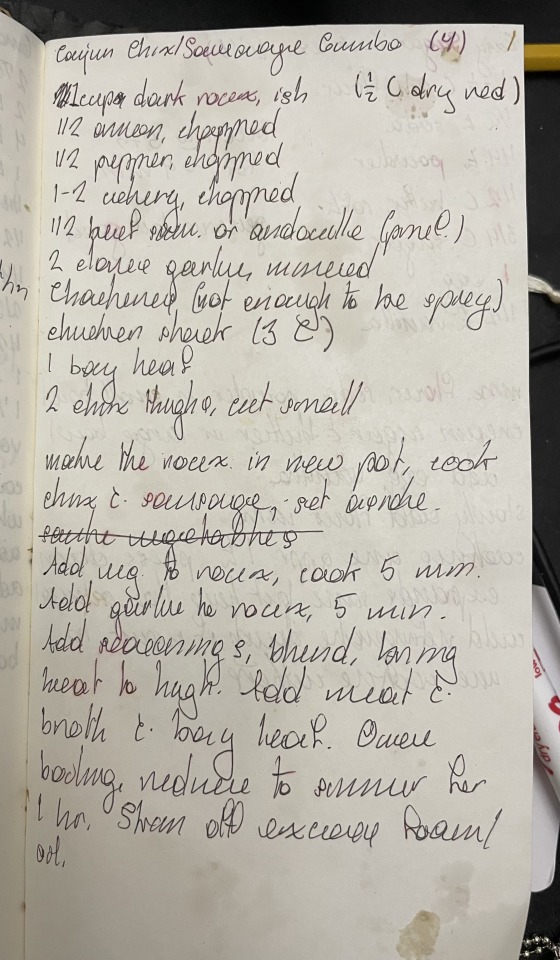 Cajun Chix/Sausage Gumbo (4)
1 cup dark roux, ish (1/2 C dry red)
1/2 onion, chopped
1/2 pepper, chopped
1-2 celery, chopped
1/2 beef saus. or andouille (pref.)
2 cloves garlic, minced
(not enough to be spicy)
chicken stock (3 C)
1 bay leaf
2 chix thighs, cut small
make the roux in new pot, cook
chix c. sausage, set aside.
saute vegetables
Add veg. to roux, cook 5 min.
Add garlic to roux, 5 min.
Add seasonings, blend, bring
heat to high. Add meat c.
broth c. bay leaf. Once
boiling, reduce to simmer for
1 hr. Skim off excess foam/
oil.